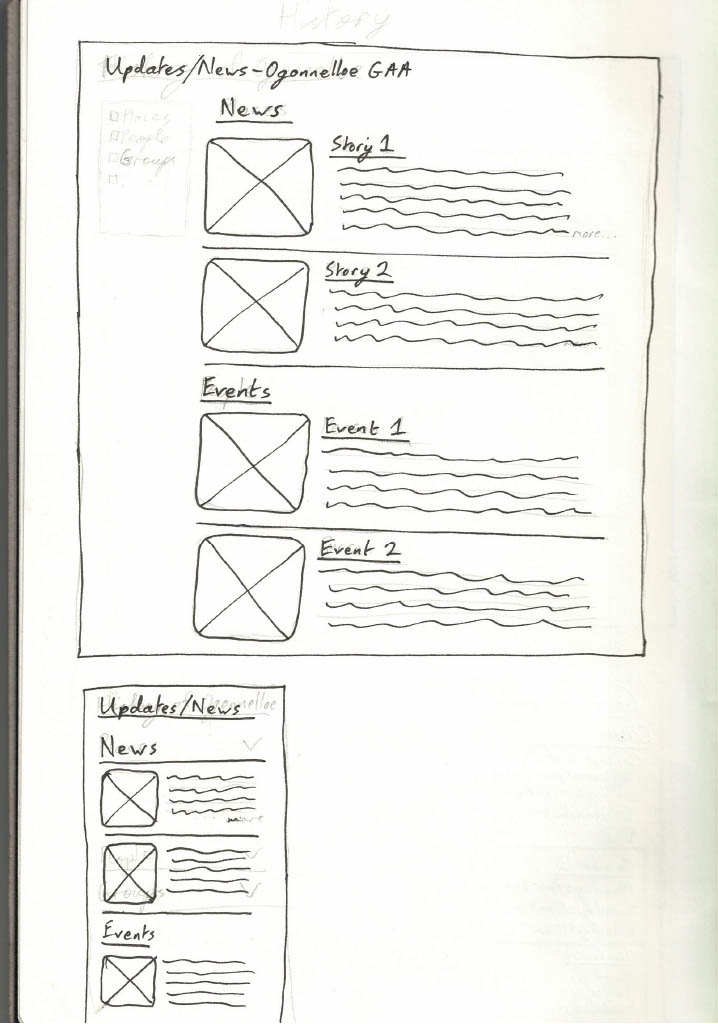 History
Updates/News-Ogonnelloe GAA
News
Places
People
Groups
Story 1
more...
Story 2
Events
Event 1
Event 2
Updates/News
Ogonnelloe
News
more
Groups
Events